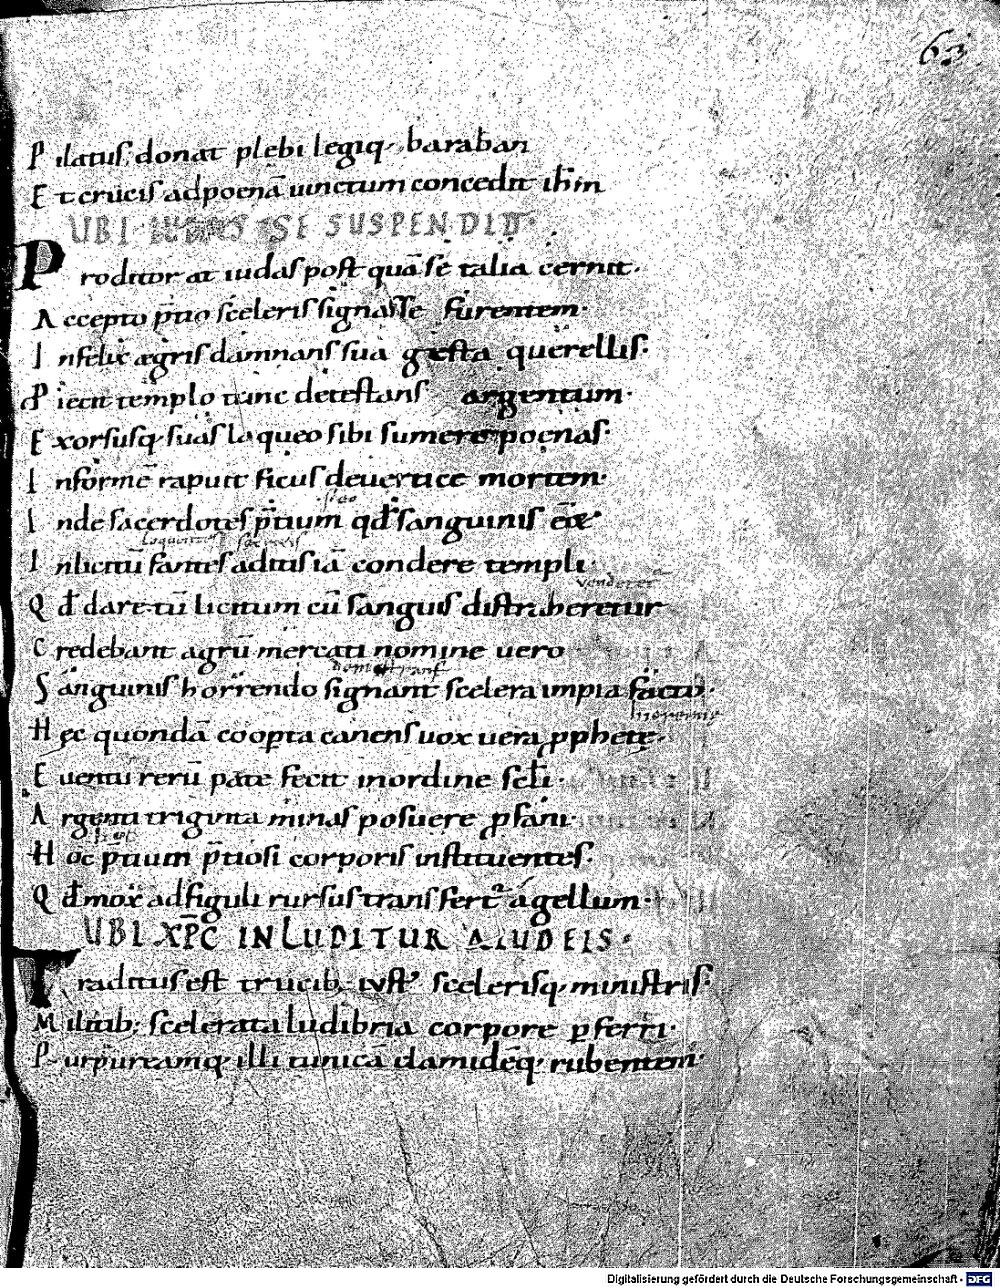 63
Pilatus donat plebi legiq; barabān
Et crucis ad poenā uinctum concedit ihm̄
UBI IUDAS SE SUSPENDIT
Proditor at iudas postquā se talia cernit.
Accepto p̄tio sceleris signasse furentem.
Infelix ægris damnans sua gesta querellis.
Piecit templo tunc detestans argentum.
Exorsusq; suas laqueo sibi sumere poenas.
Informē rapuit ficus de uertice mortem.
Inde sacerdotes p̄tium qd̄ sanguinis
Inlicitū fantes aditis iā condere templi.
uenderet
Qd̄ dare tū licitum cū sanguis distraheretur
Credebant agrū mercati nomine uero
Sanguinis horrendo signant scelera impia facto.
Hęc quondā cooperta canens uox uera pphetę.
Euentu rerū pate fecit in ordine scl̄i.
Argenti triginta minas posuere pfani.
Hoc p̄tium p̄tiosi corporis instituentes.
Qd̄ mox ad figuli rursus transfert agellum.
UBI XPC INLUDITUR A IUDEIS.
Traditus est trucib; iust' scelerisq; ministris.
Militib; scelerata ludibria corpore pferri.
Purpureamq; illi tunicā clamidēq; rubentem
Digitalisierung gefördert durch die Deutsche Forschungsgemeinschaft - DFG